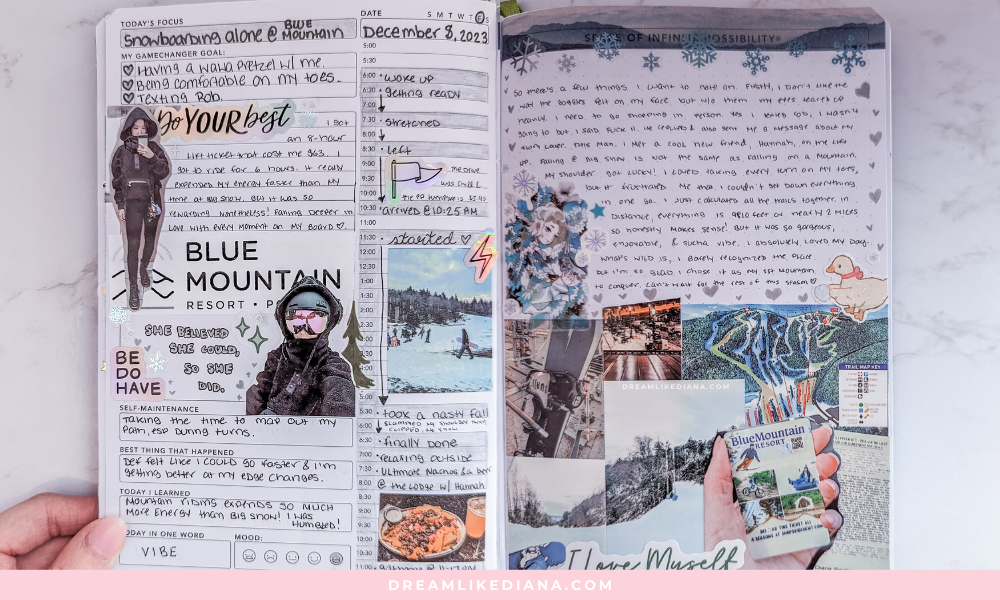 TODAY'S FOCUS
Snowboarding alone @ BLUE Mountain
MY GAMECHANGER GOAL:
Having a wawa pretzel w/ me.
Being comfortable on my toes.
Texting Rob.
Do YOUR best
I got
an 8-hour
Lift ticket that cost me $63. I
got to ride for 6 hours. It really
expended my energy faster than my
time at Big Snow. But it was so
rewarding nonetheless! Falling deeper in
Love with every moment on my Board
BLUE
MOUNTAIN
RESORT •
SHE BELIEVED
SHE COULD,
SO SHE
DID.
BE
DO
HAVE
SELF-MAINTENANCE
Taking the time to map out my
Path, esp During turns.
BEST THING THAT HAPPENED
Def felt like I COULD go faster & I'm
getting better at my edge changes.
TODAY I LEARNED
Mountain riding expends so much
more energy than Big Snow! I was
Humbled!
TODAY IN ONE WORD
VIBE
MOOD:
DATE
S M T W T F S
December 8, 2023
5:00
6:00 • woke up
6:30 getting ready
7:00
7:30 • stretched
8:00
8:30 • Left
the drive
was chill &
10:30 • arrived @ 10:25 AM
11:30 • started
12:00
12:30
1:00
1:30
2:00
2:30
5:00
• took a nasty fall
6:00
6:30 • finally done
7:00 • relaxing outside
7:30 • Ultimate Nachos & a beer
@ the Lodge w/ Hannah
8:30
9:00
9:30
10:00
10:30
11:00
SPACE OF INFINITE POSSIBILITY®
So there's a few things I want to note on. Firstly, I Don't like the
way the goggles felt on my face but w/o them my eyes teared up
heavily. I need to go shopping in person. Yes I texted Rob, I wasn't
going to but I said fuck it. He required & also sent me a message about my
own water. This man. I met a cool new friend, Hannah, on the Lift
up. Falling @ Big Snow is not the same as falling on a Mountain.
My shoulder got lucky! I loved taking every turn on my toes,
but it frustrated me that I couldn't get down everything
in one go. I just calculated all the trails together. In
Distance, everything is 9210 feet or nearly 2 miles
so honestly makes sense. But it was so gorgeous,
enjoyable, & sucha vibe. I absolutely loved my day.
What's wild is, I barely recognized the place.
but I'm so glad I chose it as my 1st Mountain
to conquer. Can't wait for the rest of this season
DREAMLIKEDIANA.COM
TRAIL MAP KEY
Blue Mountain
RESORT
I Love Myself
DREAMLIKEDIANA.COM